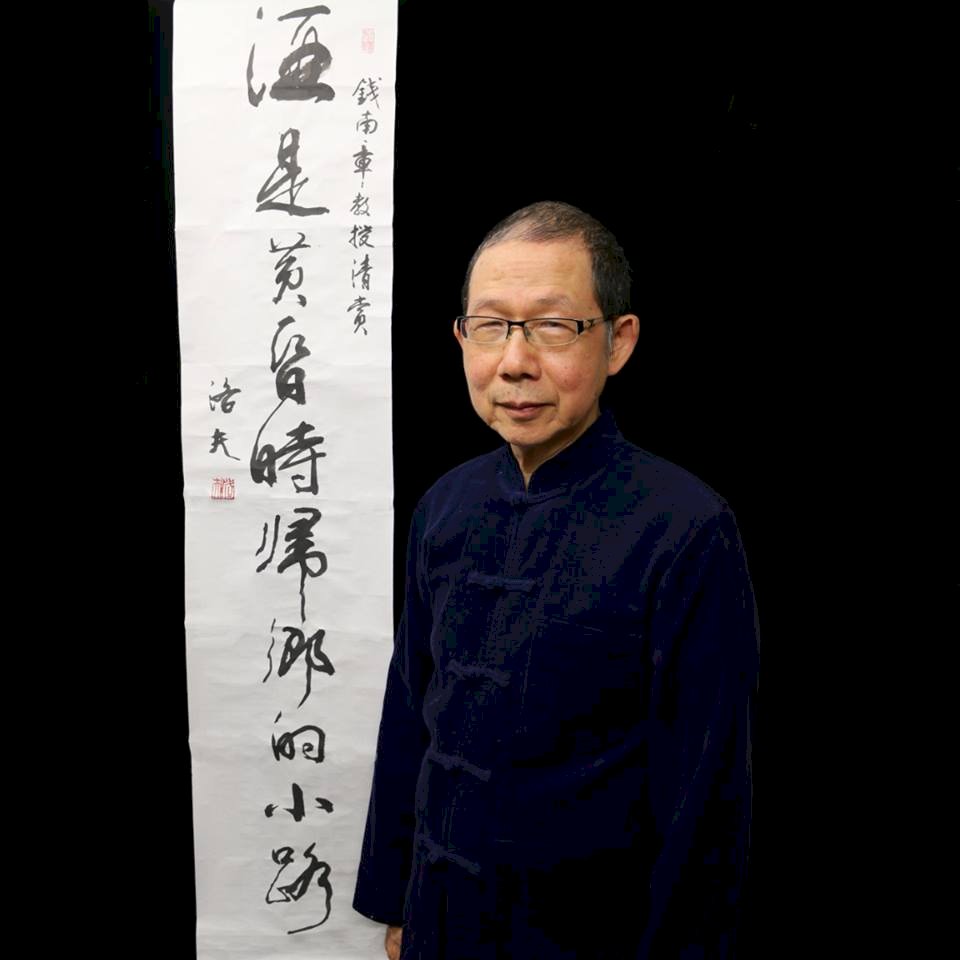 錢南章教授清賞
酒是黃昏時歸鄉的小路
洛夫